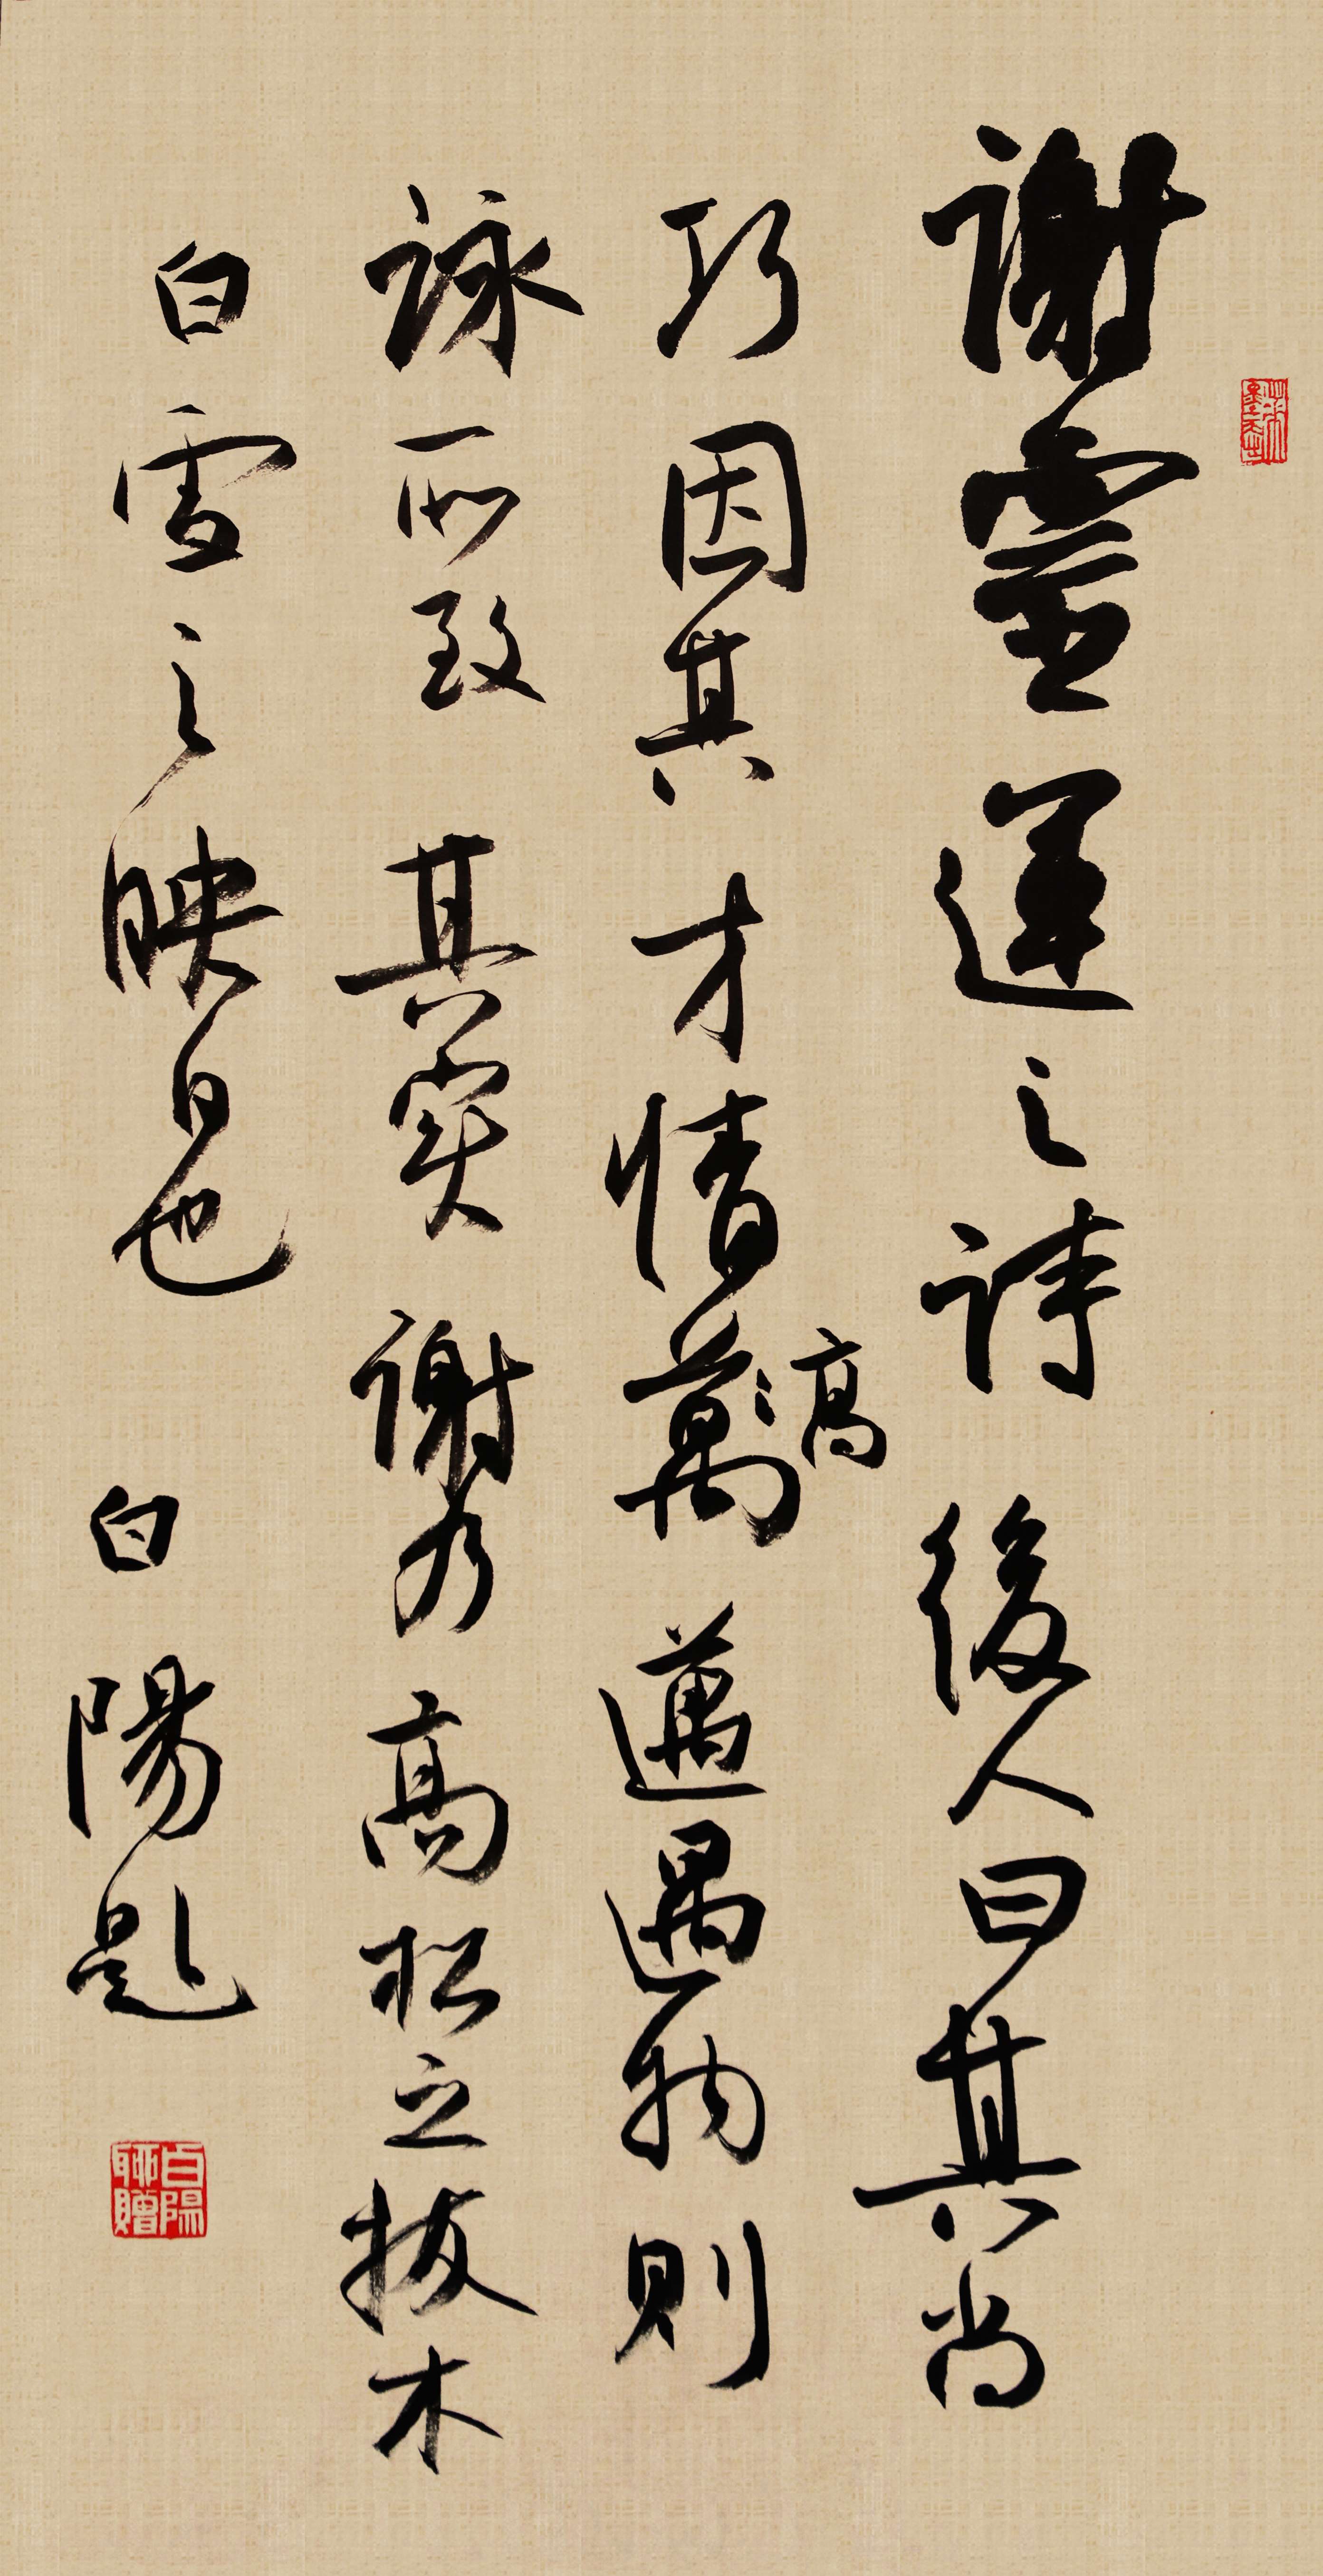 謝靈運之詩後人曰其尚
巧因其才情萬高邁遇物則
詠所致其實謝乃高松之拔木
白雪之映日也
白陽題
白陽